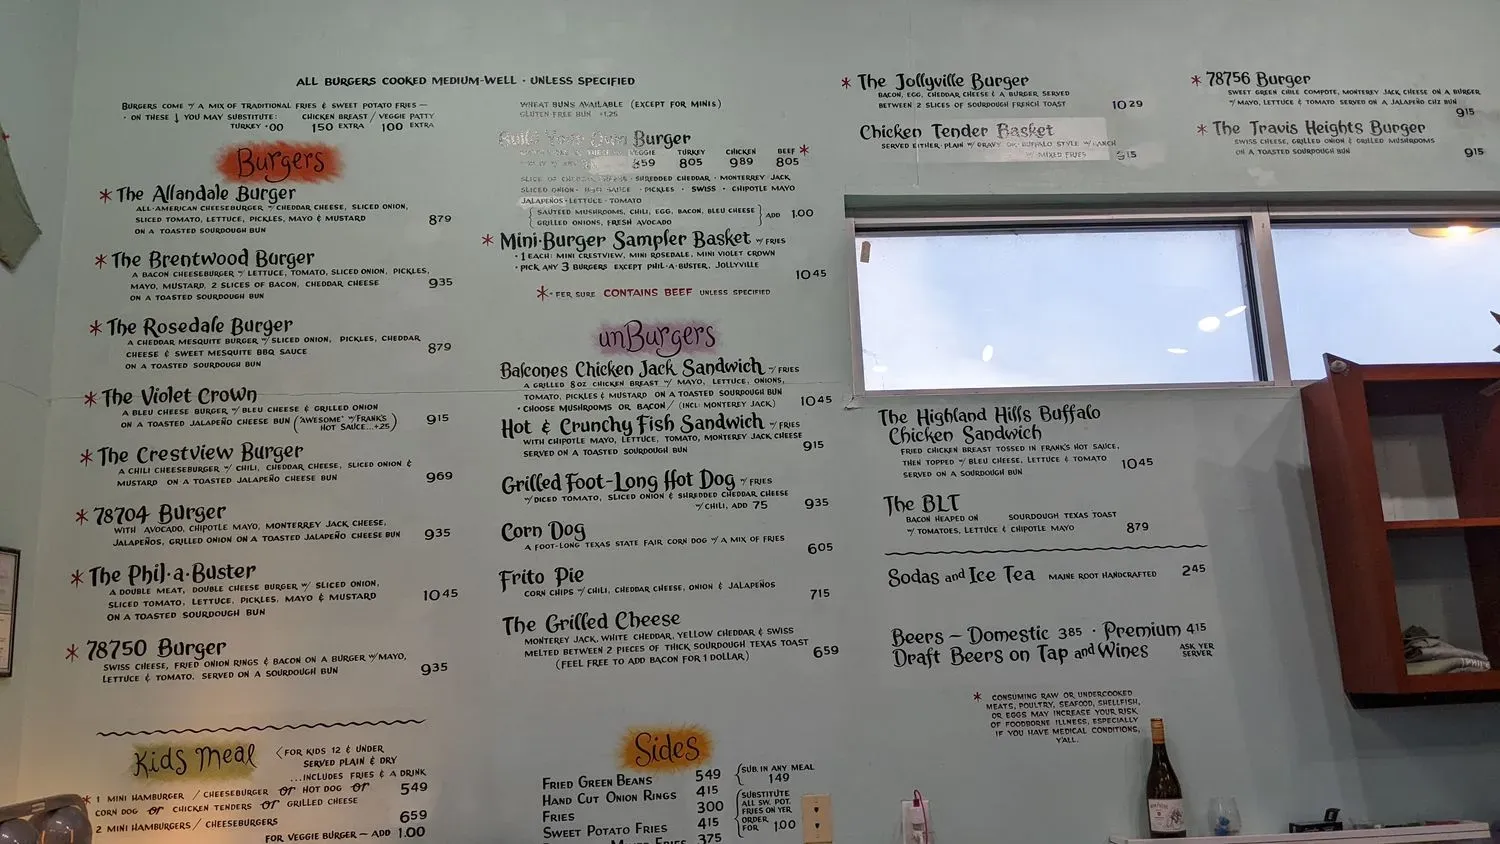 ALL BURGERS COOKED MEDIUM-WELL · UNLESS SPECIFIED
BURGERS COME W/ A MIX OF TRADITIONAL FRIES & SWEET POTATO FRIES —
· ON THESE ↓ YOU MAY SUBSTITUTE: CHICKEN BREAST / VEGGIE PATTY
TURKEY .00 1 50 EXTRA 1 00 EXTRA
Burgers
* The Allandale Burger
ALL-AMERICAN CHEESEBURGER W/ CHEDDAR CHEESE, SLICED ONION,
SLICED TOMATO, LETTUCE, PICKLES, MAYO & MUSTARD 8 79
ON A TOASTED SOURDOUGH BUN
* The Brentwood Burger
A BACON CHEESEBURGER W/ LETTUCE, TOMATO, SLICED ONION, PICKLES,
MAYO, MUSTARD, 2 SLICES OF BACON, CHEDDAR CHEESE 9 35
ON A TOASTED SOURDOUGH BUN
* The Rosedale Burger
A CHEDDAR MESQUITE BURGER W/ SLICED ONION, PICKLES, CHEDDAR
CHEESE & SWEET MESQUITE BBQ SAUCE 8 79
ON A TOASTED SOURDOUGH BUN
* The Violet Crown
A BLEU CHEESE BURGER W/ BLEU CHEESE & GRILLED ONION
ON A TOASTED JALAPEÑO CHEESE BUN ("AWESOME" W/ FRANK'S 9 15
HOT SAUCE...+.25)
* The Crestview Burger
A CHILI CHEESEBURGER W/ CHILI, CHEDDAR CHEESE, SLICED ONION &
MUSTARD ON A TOASTED JALAPEÑO CHEESE BUN 9 69
* 78704 Burger
WITH AVOCADO, CHIPOTLE MAYO, MONTERREY JACK CHEESE,
JALAPEÑOS, GRILLED ONION ON A TOASTED JALAPEÑO CHEESE BUN 9 35
* The Phil·a·Buster
A DOUBLE MEAT, DOUBLE CHEESE BURGER W/ SLICED ONION,
SLICED TOMATO, LETTUCE, PICKLES, MAYO & MUSTARD 10 45
ON A TOASTED SOURDOUGH BUN
* 78750 Burger
SWISS CHEESE, FRIED ONION RINGS & BACON ON A BURGER W/ MAYO,
LETTUCE & TOMATO. SERVED ON A SOURDOUGH BUN 9 35
Kids Meal
<FOR KIDS 12 & UNDER
SERVED PLAIN & DRY
...INCLUDES FRIES & A DRINK
* 1 MINI HAMBURGER / CHEESEBURGER or HOT DOG or 5 49
CORN DOG or CHICKEN TENDERS or GRILLED CHEESE
2 MINI HAMBURGERS / CHEESEBURGERS 6 59
FOR VEGGIE BURGER — ADD 1.00
WHEAT BUNS AVAILABLE (EXCEPT FOR MINIS)
GLUTEN-FREE BUN +1.25
Build Your Own Burger
VEGGIE TURKEY CHICKEN BEEF *
8 59 8 05 9 89 8 05
SHREDDED CHEDDAR · MONTERREY JACK
SLICED ONION · BBQ SAUCE · PICKLES · SWISS · CHIPOTLE MAYO
JALAPEÑOS · LETTUCE · TOMATO
{ SAUTEED MUSHROOMS, CHILI, EGG, BACON, BLEU CHEESE } ADD 1.00
GRILLED ONIONS, FRESH AVOCADO
* Mini·Burger Sampler Basket W/ FRIES
· 1 EACH: MINI CRESTVIEW, MINI ROSEDALE, MINI VIOLET CROWN
· PICK ANY 3 BURGERS EXCEPT PHIL·A·BUSTER, JOLLYVILLE
10 45
*- FER SURE CONTAINS BEEF UNLESS SPECIFIED
unBurgers
Balcones Chicken Jack Sandwich W/ FRIES
A GRILLED 8 OZ CHICKEN BREAST W/ MAYO, LETTUCE, ONIONS,
TOMATO, PICKLES & MUSTARD ON A TOASTED SOURDOUGH BUN
· CHOOSE MUSHROOMS OR BACON / (INCL. MONTEREY JACK) 10 45
Hot & Crunchy Fish Sandwich W/ FRIES
WITH CHIPOTLE MAYO, LETTUCE, TOMATO, MONTEREY JACK CHEESE
SERVED ON A TOASTED SOURDOUGH BUN 9 15
Grilled Foot-Long Hot Dog W/ FRIES
W/ DICED TOMATO, SLICED ONION & SHREDDED CHEDDAR CHEESE
W/ CHILI, ADD 75 9 35
Corn Dog
A FOOT-LONG TEXAS STATE FAIR CORN DOG W/ A MIX OF FRIES 6 05
Frito Pie
CORN CHIPS W/ CHILI, CHEDDAR CHEESE, ONION & JALAPEÑOS 7 15
The Grilled Cheese
MONTEREY JACK, WHITE CHEDDAR, YELLOW CHEDDAR & SWISS
MELTED BETWEEN 2 PIECES OF THICK SOURDOUGH TEXAS TOAST 6 59
(FEEL FREE TO ADD BACON FOR 1 DOLLAR)
Sides
FRIED GREEN BEANS 5 49
HAND CUT ONION RINGS 4 15
FRIES 3 00
SWEET POTATO FRIES 4 15
3 75
{ SUB IN ANY MEAL
1 49
{ SUBSTITUTE
ALL SW. POT.
FRIES ON YER
ORDER
FOR 1.00
* The Jollyville Burger
BACON, EGG, CHEDDAR CHEESE & A BURGER SERVED
BETWEEN 2 SLICES OF SOURDOUGH FRENCH TOAST 10 29
Chicken Tender Basket
SERVED EITHER · PLAIN W/ GRAVY OR · BUFFALO STYLE W/ RANCH
W/ MIXED FRIES 9 15
* 78756 Burger
SWEET GREEN CHILE COMPOTE, MONTEREY JACK CHEESE ON A BURGER
W/ MAYO, LETTUCE & TOMATO SERVED ON A JALAPEÑO CHZ BUN
9 15
* The Travis Heights Burger
SWISS CHEESE, GRILLED ONION & GRILLED MUSHROOMS
ON A TOASTED SOURDOUGH BUN 9 15
The Highland Hills Buffalo
Chicken Sandwich
FRIED CHICKEN BREAST TOSSED IN FRANK'S HOT SAUCE,
THEN TOPPED W/ BLEU CHEESE, LETTUCE & TOMATO 10 45
SERVED ON A SOURDOUGH BUN
The BLT
BACON HEAPED ON SOURDOUGH TEXAS TOAST
W/ TOMATOES, LETTUCE & CHIPOTLE MAYO 8 79
Sodas and Ice Tea MAINE ROOT HANDCRAFTED 2 45
Beers — Domestic 3 85 · Premium 4 15
Draft Beers on Tap and Wines ASK YER
SERVER
* CONSUMING RAW OR UNDERCOOKED
MEATS, POULTRY, SEAFOOD, SHELLFISH,
OR EGGS MAY INCREASE YOUR RISK
OF FOODBORNE ILLNESS, ESPECIALLY
IF YOU HAVE MEDICAL CONDITIONS,
Y'ALL.